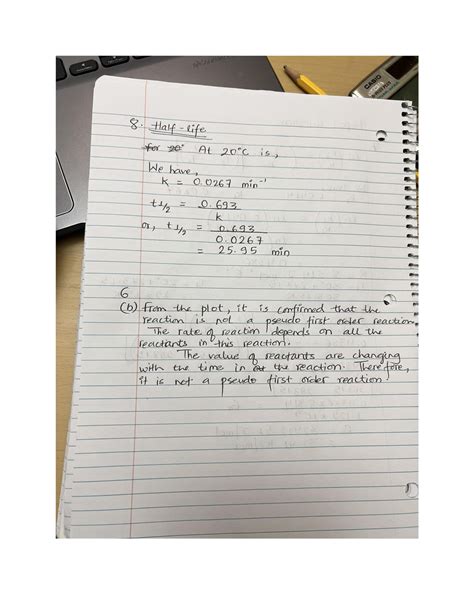 8. Half-life
for 20° At 20°C is,
We have,
k = 0.0267 min⁻¹
t 1/2 = 0.693
k
or, t 1/2 = 0.693
0.0267
= 25.95 min
6
(b) From the plot, it is confirmed that the
reaction is not a pseudo first order reaction.
The rate of reaction depends on all the
reactants in this reaction.
The value of reactants are changing
with the time in the reaction. Therefore,
it is not a pseudo first order reaction
CASIO